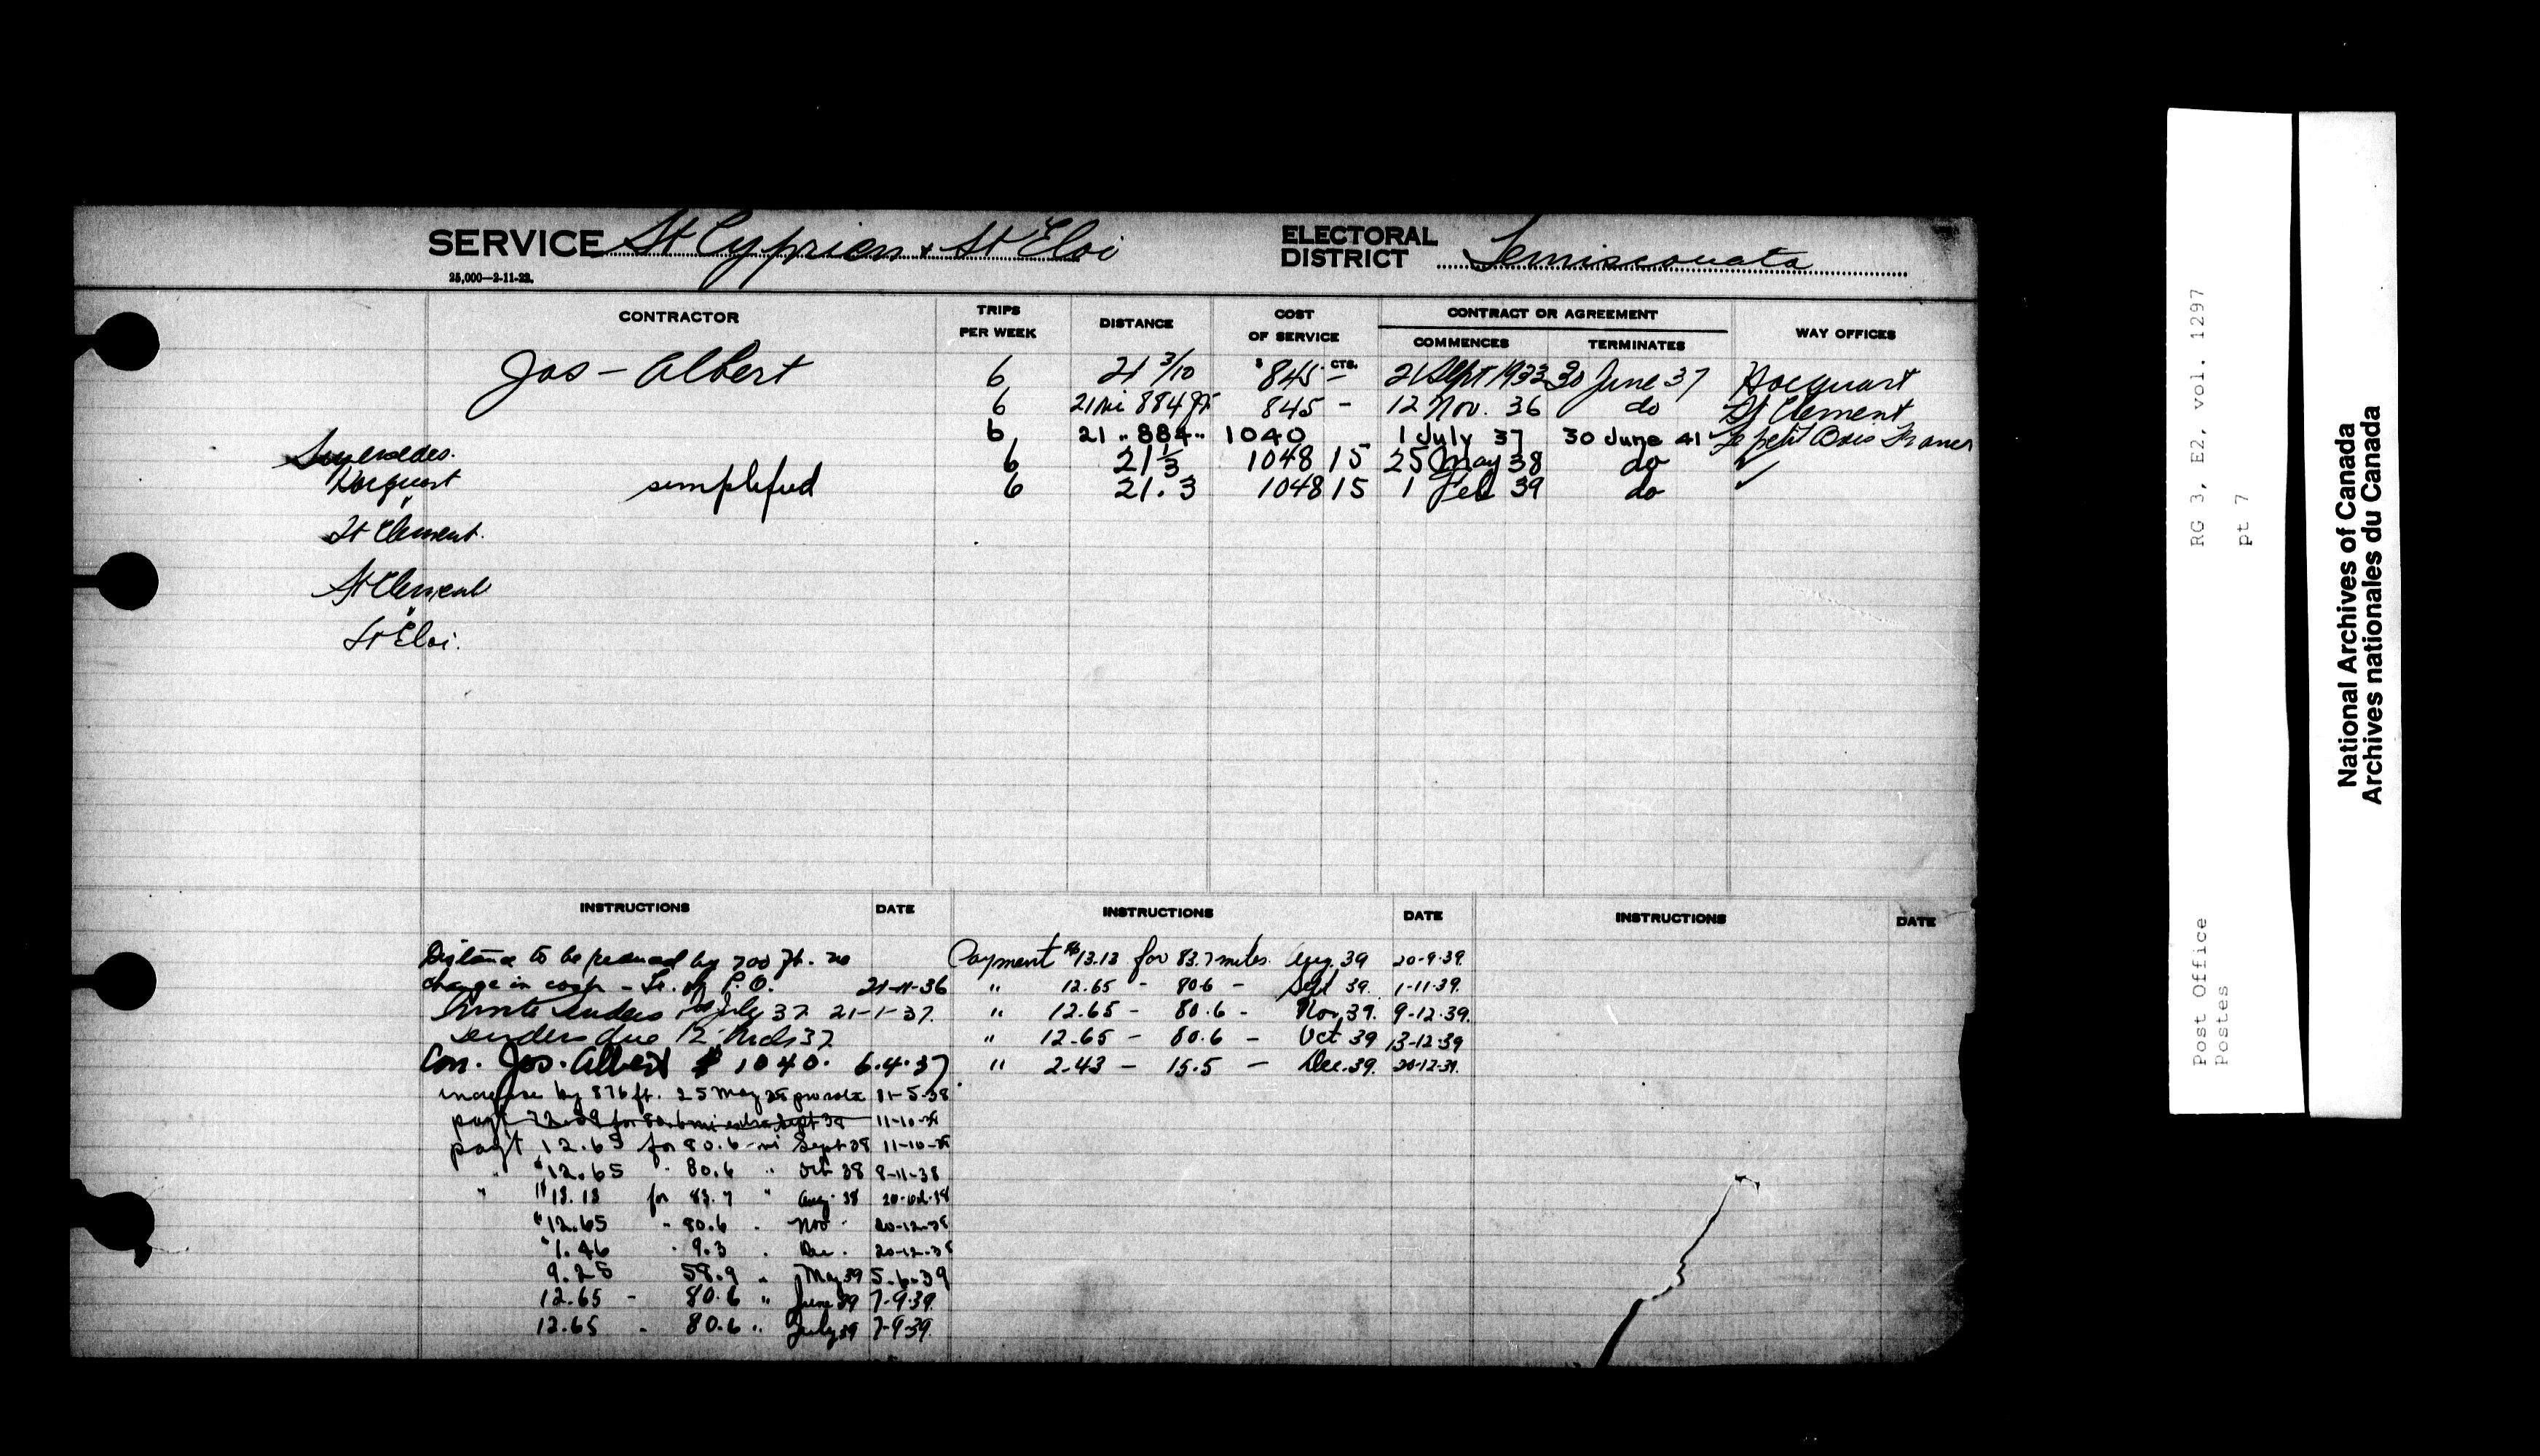 SERVICE St Cyprien & St Eloi ELECTORAL DISTRICT Temiscouata
25,000—2-11-22.
CONTRACTOR TRIPS PER WEEK DISTANCE COST OF SERVICE CONTRACT OR AGREEMENT COMMENCES TERMINATES WAY OFFICES
Jos - Albert 6 21 3/10 $845 - CTS. 21 Sept 1933 30 June 37 Hocquart
6 21 mi 884 ft 845 - 12 Nov. 36 do St Clement
6 21 " 884 " 1040 1 July 37 30 June 41 Le petit Bois Franc
Supersedes. 6 21 1/3 1048 15 25 May 38 do ✓
Hocquart simplified 6 21.3 1048 15 1 Feb 39 do ✓
"
St Clement.
St Clement
"
St Eloi.
INSTRUCTIONS DATE INSTRUCTIONS DATE INSTRUCTIONS DATE
Distance to be by 700 ft. no
change in cost - P.O. 21-11-36
Invite tenders 1st July 37 21-1-37.
Tenders due 12 Mch 37
Con. Jos. Albert $ 1040. 6.4.37
increase by 876 ft. 25 May 38 pro rata 11-5-38
pay't for 80.6 mi extra Sept 38 11-10-38
pay't 12.65 for 80.6 mi Sept 38 11-10-38
" "12.65 " 80.6 " Oct 38 8-11-38
" "13.13 for 83.7 " Aug. 38 20-Oct-38
"12.65 " 80.6 . Nov . 20-12-38
"1.46 " 9.3 . Dec . 20-12-38
9.25 58.9 " May 39 5.6.39
12.65 - 80.6 " June 39 7-9-39
12.65 - 80.6 " July 39 7-9-39.
Payment $13.13 for 83.7 miles Aug. 39 20-9-39.
" 12.65 - 80.6 - Sept 39. 1-11-39.
" 12.65 - 80.6 - Nov. 39. 9-12-39.
" 12.65 - 80.6 - Oct 39 13-12-39
" 2.43 - 15.5 - Dec. 39. 20-12-39.
RG 3, E2, vol. 1297
pt 7
Post Office
Postes
National Archives of Canada
Archives nationales du Canada